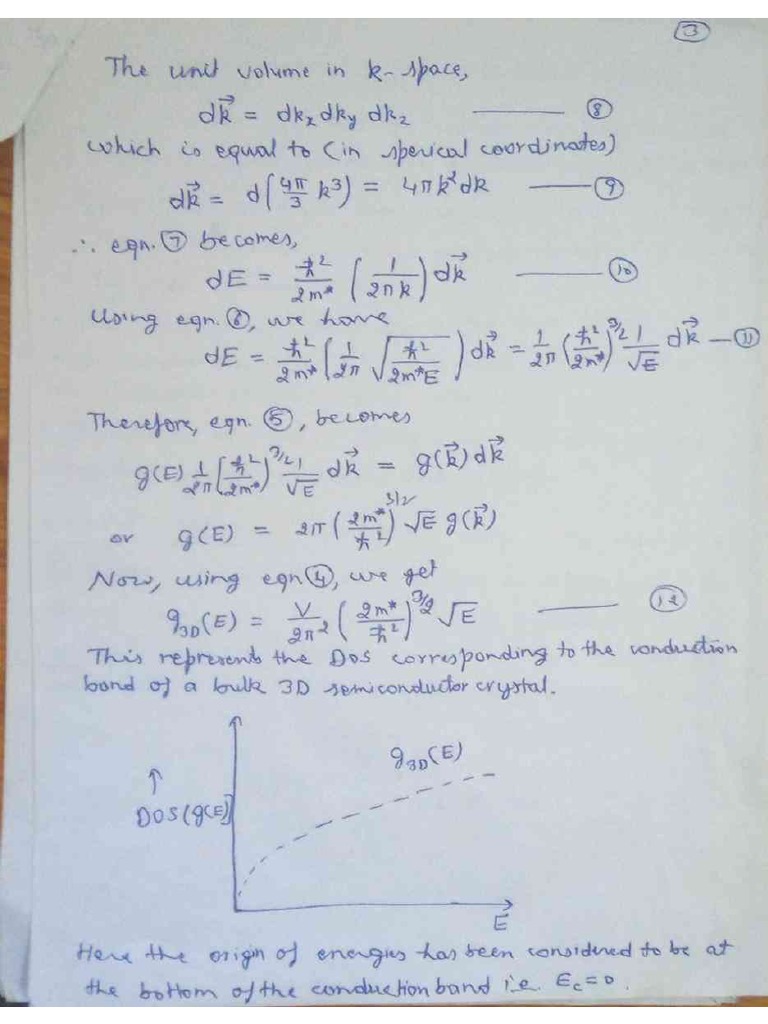 ③
The unit volume in k-space,
dk⃗ = dkx dky dkz ——— ⑧
which is equal to (in sperical coordinates)
dk⃗ = d(4π/3 k³) = 4πk²dk ——— ⑨
∴ eqn. ⑦ becomes,
dE = ħ²/2m* (1/2πk) dk⃗ ——— ⑩
Using eqn. ⑥, we have
dE = ħ²/2m* (1/2π √(ħ²/2m*E)) dk⃗ = 1/2π (ħ²/2m*)^3/2 1/√E dk⃗ — ⑪
Therefore, eqn. ⑤, becomes
g(E) 1/2π (ħ²/2m*)^3/2 1/√E dk⃗ = g(k⃗) dk⃗
or g(E) = 2π (2m*/ħ²)^3/2 √E g(k⃗)
Now, using eqn ④, we get
g3D(E) = V/2π² (2m*/ħ²)^3/2 √E ——— ⑫
This represents the DOS corresponding to the conduction
band of a bulk 3D semiconductor crystal.
g3D(E)
↑
DOS(g(E)]
E
Here the origin of energies has been considered to be at
the bottom of the conduction band i.e. Ec=0.